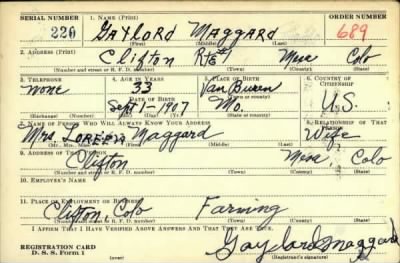 SERIAL NUMBER 1. NAME (Print) ORDER NUMBER
220 Gaylord Maggard 689
(First) (Middle) (Last)
2. ADDRESS (Print)
Clifton Rte#1 Mesa Colo
(Number and street or R. F. D. number) (Town) (County) (State)
3. TELEPHONE 4. AGE IN YEARS 5. PLACE OF BIRTH 6. COUNTRY OF CITIZENSHIP
None 33 Van Buren
DATE OF BIRTH (Town or county)
Sept 1-1907 Mo. U.S.
(Exchange) (Number) (Mo.) (Day) (Yr.) (State or country)
7. NAME OF PERSON WHO WILL ALWAYS KNOW YOUR ADDRESS 8. RELATIONSHIP OF THAT PERSON
Mrs. Maggard Wife
(Mr., Mrs., Miss) (First) (Middle) (Last)
9. ADDRESS OF THAT PERSON
Clifton Mesa, Colo
(Number and street or R. F. D. number) (Town) (County) (State)
10. EMPLOYER'S NAME
11. PLACE OF EMPLOYMENT OR BUSINESS
Clifton, Colo Farming
(Number and street or R. F. D. number) (Town) (County) (State)
I AFFIRM THAT I HAVE VERIFIED ABOVE ANSWERS AND THAT THEY ARE TRUE.
REGISTRATION CARD
D. S. S. Form 1 Gaylord Maggard
(over) (Registrant's signature)